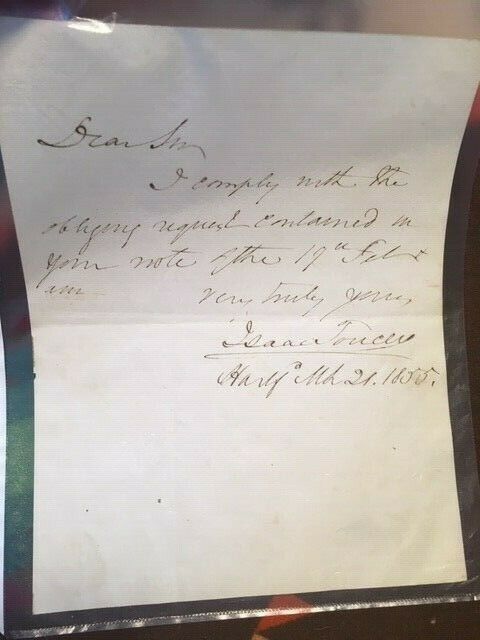 Dear Sir
I comply with the
obliging request contained in
your note of the 19th Feb &
am very truly yours,
Isaac Toucey
Hartfd Mh 21. 1855.